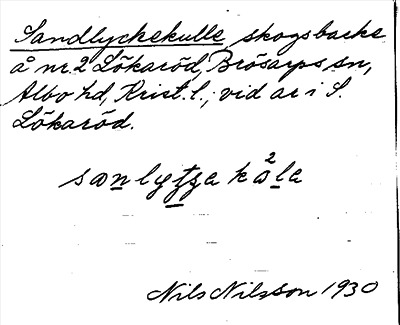 Sandlyckekulle, skogsbacke
å nr 2 Lökaröd, Brösarps sn,
Albo hd, Krist. l.; vid ar i S.
Lökaröd.
2
sanlytʒe kale
Nils Nilsson 1930